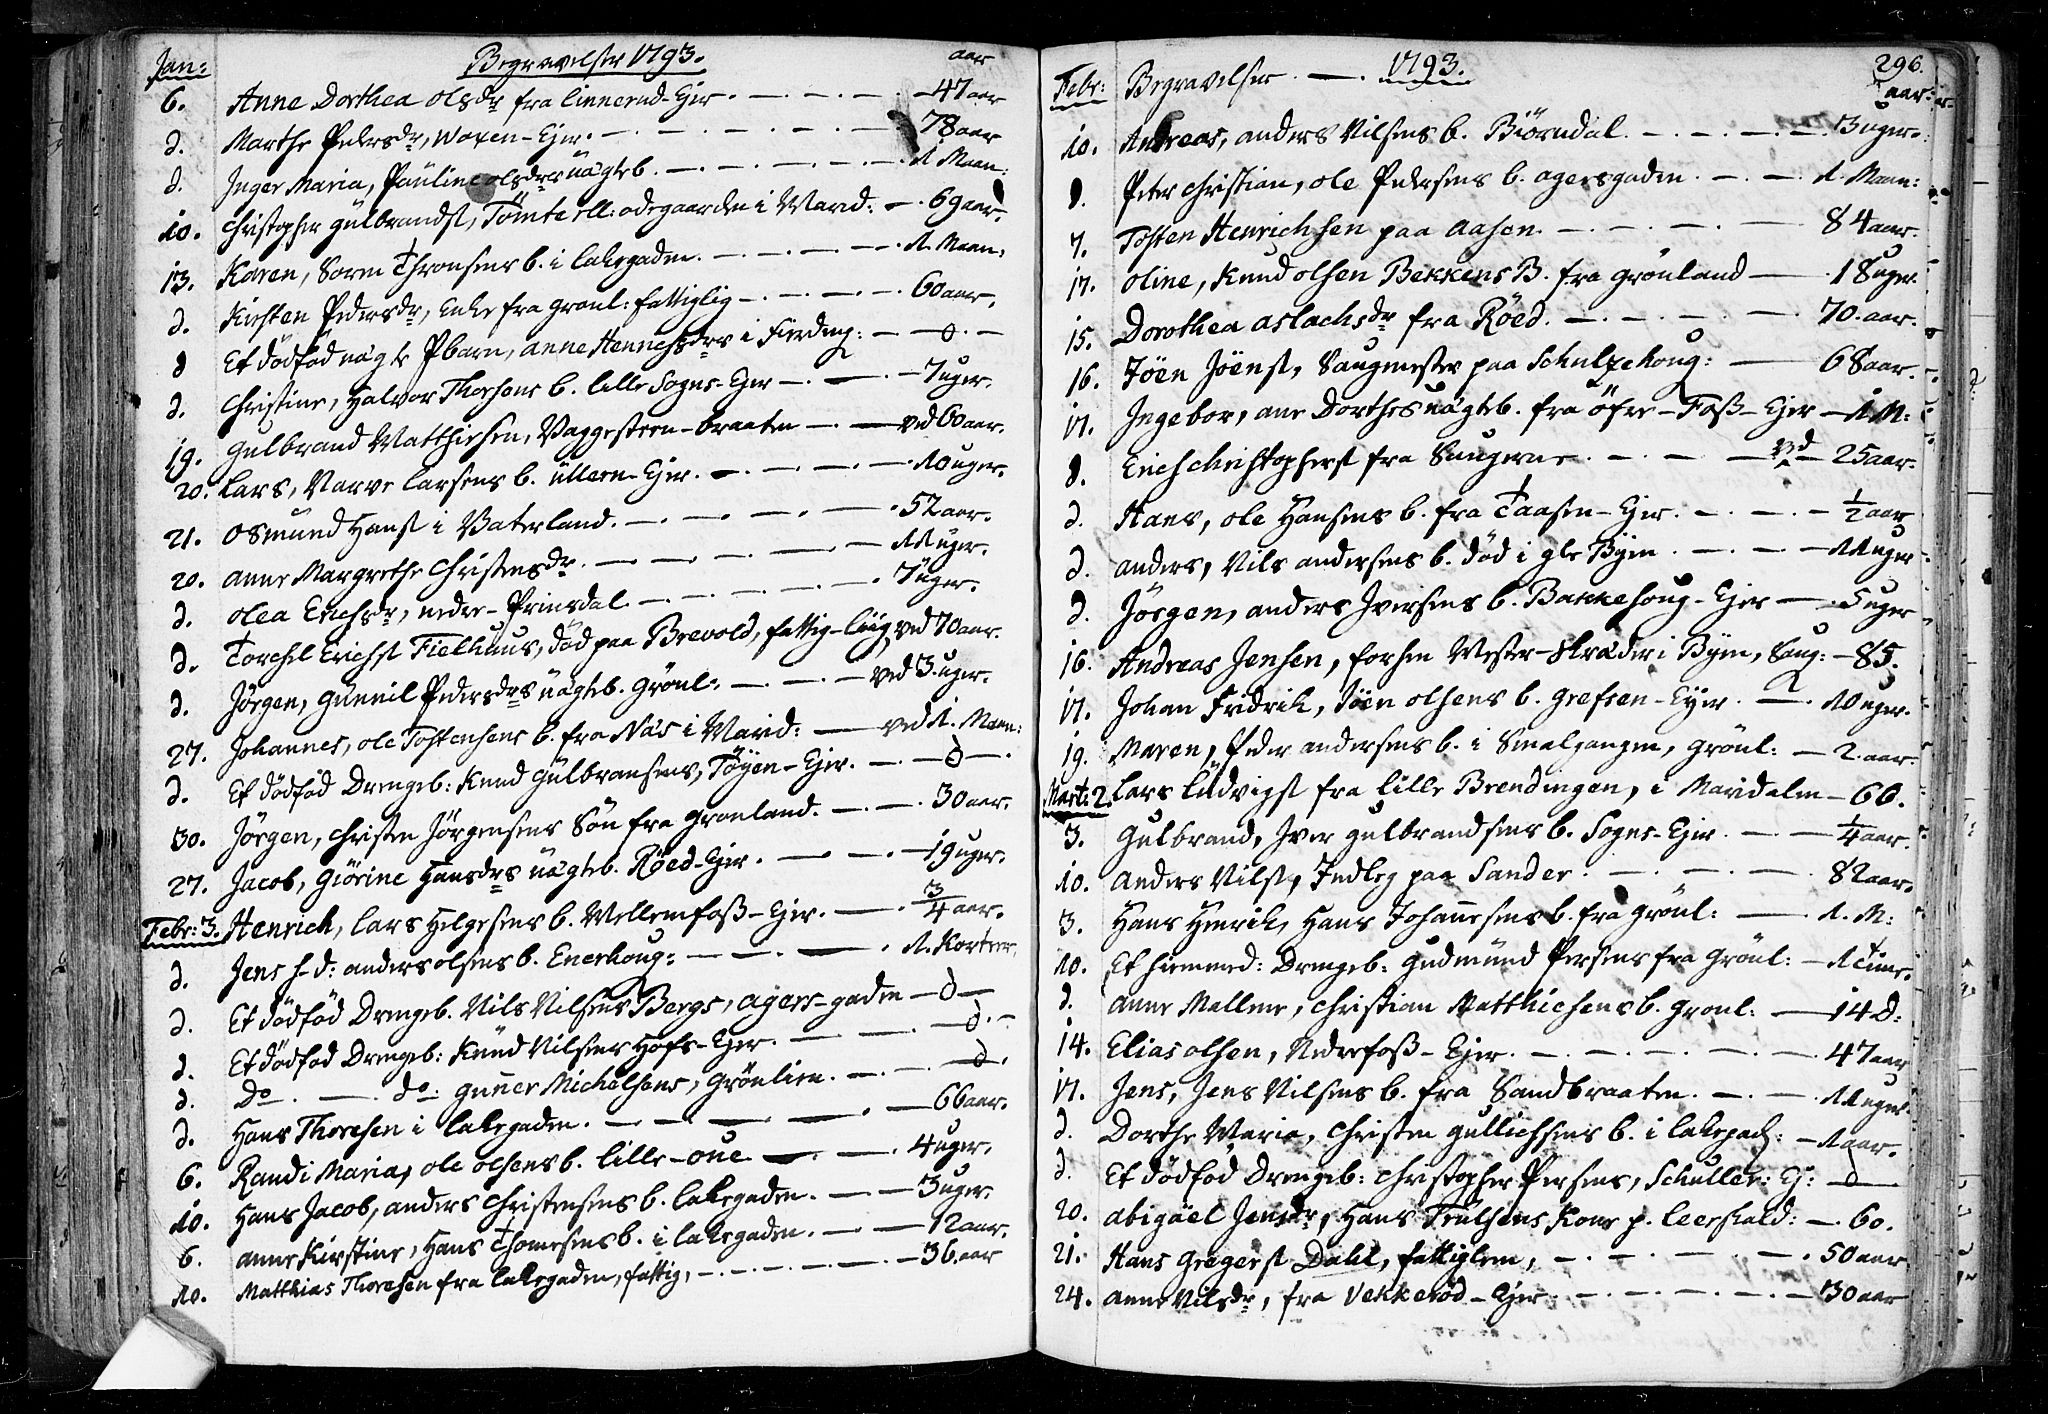 Jan: Begravelser 1793. aar
6. Anne Dorthea olsdr fra linnerud-Ejer. 47 aar
d. Marthe Pedersdr, Woxen-Ejer. 78 aar
d. Inger Maria, Pauline olsdrs uägteb. 1. Maan:
10. Christopher gulbrandst, Tömte ell: odegaarden i Marid: 69 aar.
13. Karen, Soren Thronsens b. i lakegaden. 1. Maan.
d. Kirsten Pedersdr, Enke fra gronl: fattiglig 60 aar.
d Et dödföd uägte Pbarn, anne Hennessdrs i Fierding: 0
d. Christine, Halvor Thorsens b. lille Sogns-Ejer 7 uger.
19. Gulbrand Matthiesen, Vaggesteen-braaten ved 60 aar.
20. Lars, Narve larsens b. üllern-Ejer. 10 uger.
21. Osmund Hanst i Vaterland. 52 aar.
20. Anne Margrethe Christensdr. 11 uger.
d. olea Erichsdr, nedre-Prinsdal. 7 uger.
d. Torchel Erichst Fielhuus, död paa Brevold, fattig-liig, ved 70 aar.
d. Jörgen, Gunnil Pedersdrs uägteb. Grönl: ved 3. uger.
27. Johannes, ole Tostensens b. fra Näs i Marid: ved 1. Maan:
d. Et dödföd Drengeb: Knud Gulbransens, Töyen-Ejer. 0
30. Jörgen, Christen Jörgensens Sön fra Gronland. 30 aar.
27. Jacob, Giörine Hansdrs uägteb. Röed-Ejer. 19 uger.
Febr: 3. Henrich, Lars Helgesens b. Mellemfoss-Ejer. 3/4 aar.
d. Jens h-d: anders olsens b. Enerhoug: 1. Korteer.
d. Et dödföd Drengeb. Nils Nilsens Bergs, agers-gaden 0
d. Et dödföd Drengeb: Knud Nilsens Hofs-Ejer. 0.
d. Do. do: Gunner Michelsens, Grönlien. 0.
d. Hans Thoresen i lakegaden. 66 aar.
6. Randi Maria, ole olsens b. lille-oue 4 uger.
10. Hans Jacob, anders Christensens b. lakegaden. 3 uger.
6. Anne Kirstine, Hans Thomesens b. i lakegaden. 12 aar.
10. Matthias Thoresen fra lakegaden, fattig, 36. aar
296.
Febr: Begravelser 1793. aar:
10. Andreas, anders Nilsens b. Biörndal. 3 uger.
d. Peter Christian, ole Pedersens b. agersgaden. 1. Maan:
7. Tosten Henrichsen paa Aasen. 84 aar.
17. Oline, Knud olsen Bekkens B. fra Grönland 18 uger.
15. Dorothea Aslachsdr fra Röed. 70. aar.
16. Jöen Jöenst, Saugmester paa Schulzehoug: 68 aar.
17. Ingebor, ane Dorthes uägteb. fra öfre-Foss-Ejer 1 M:
d. Erich Christopherst fra Saugerne. ved 25 aar.
d. Hans, ole Hansens b. fra Taasen-Ejer. 1/2 aar
d. anders, Nils andersens b. död i gle Byen. 11 uger
d. Jörgen, anders Iversens b. Bakkehoug-Ejer 5 uger
16. Andreas Jensen, forhen Mester-Skræder i Byen, Saug: 85.
17. Johan Fridrik, Jöen olsens b. Grefsen-Ejer. 10 uger.
19. Maren, Peder andersens b. i Smalgangen, Grönl: 2. aar.
Mart: 2. Lars Ludvigst fra lille Brendingen, i Maridalen 60.
3. Gulbrand, Iver gulbrandsens b. Sogns-Ejer 1/4 aar.
10. Anders Nilst, Indleg paa Sander. 82 aar.
3. Hans Henrik, Hans Johannesens b. fra Grönl: 1. M:
10. Et hiemmed: Drengeb: Gudmund Persens fra Grönl: 1 Time.
d. Anne Mallene, Christian Matthiesens b. Gronl: 14 D:
14. Elias olsen, Nedrefoss-Ejer. 47 aar
17. Jens, Jens Nilsens b. fra Sandbraaten. 11 uger
d. Dorthe Maria, Christen Gullichsens b. i lakegad: 1 aar.
d. Et dödföd Drengeb: Christopher Persens, Schuller: Ej: 0
20. Abigäel Jensdr, Hans Trulsens Kone p. leerfald: 60.
21. Hans Gregerst Dahl, fattiglem, 50 aar
24. Anne Nilsdr, fra Vekkeröd-Ejer 30 aar